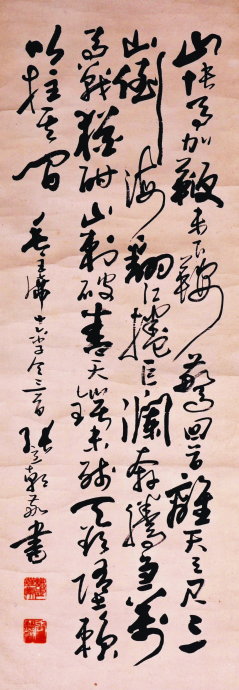 山快馬加鞭未下鞍驚回首離天三尺三
山倒海翻江捲巨瀾奔騰急萬
馬戰猶酣山刺破青天鍔未殘天欲墮賴
以拄其間
毛主席十六字令三首張朝書